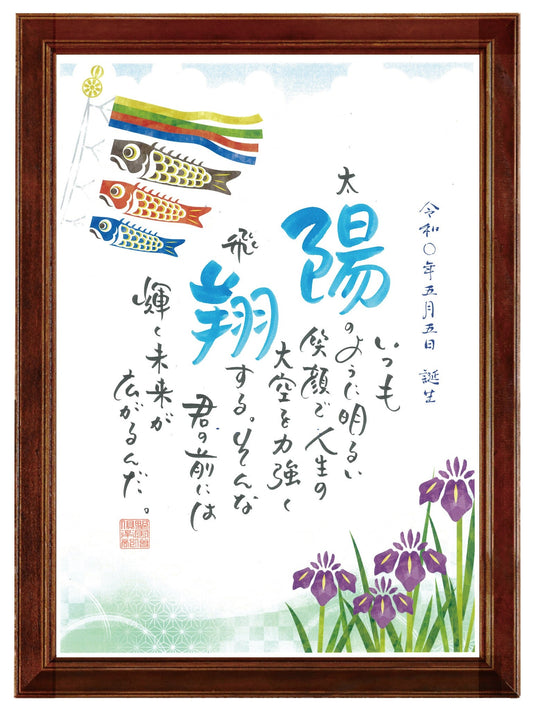 令和〇年五月五日 誕生
いつも
太陽のように明るい
笑顔で、人生の
大空を力強く
飛翔する。そんな
君の前には
輝く未来が
広がるんだ。